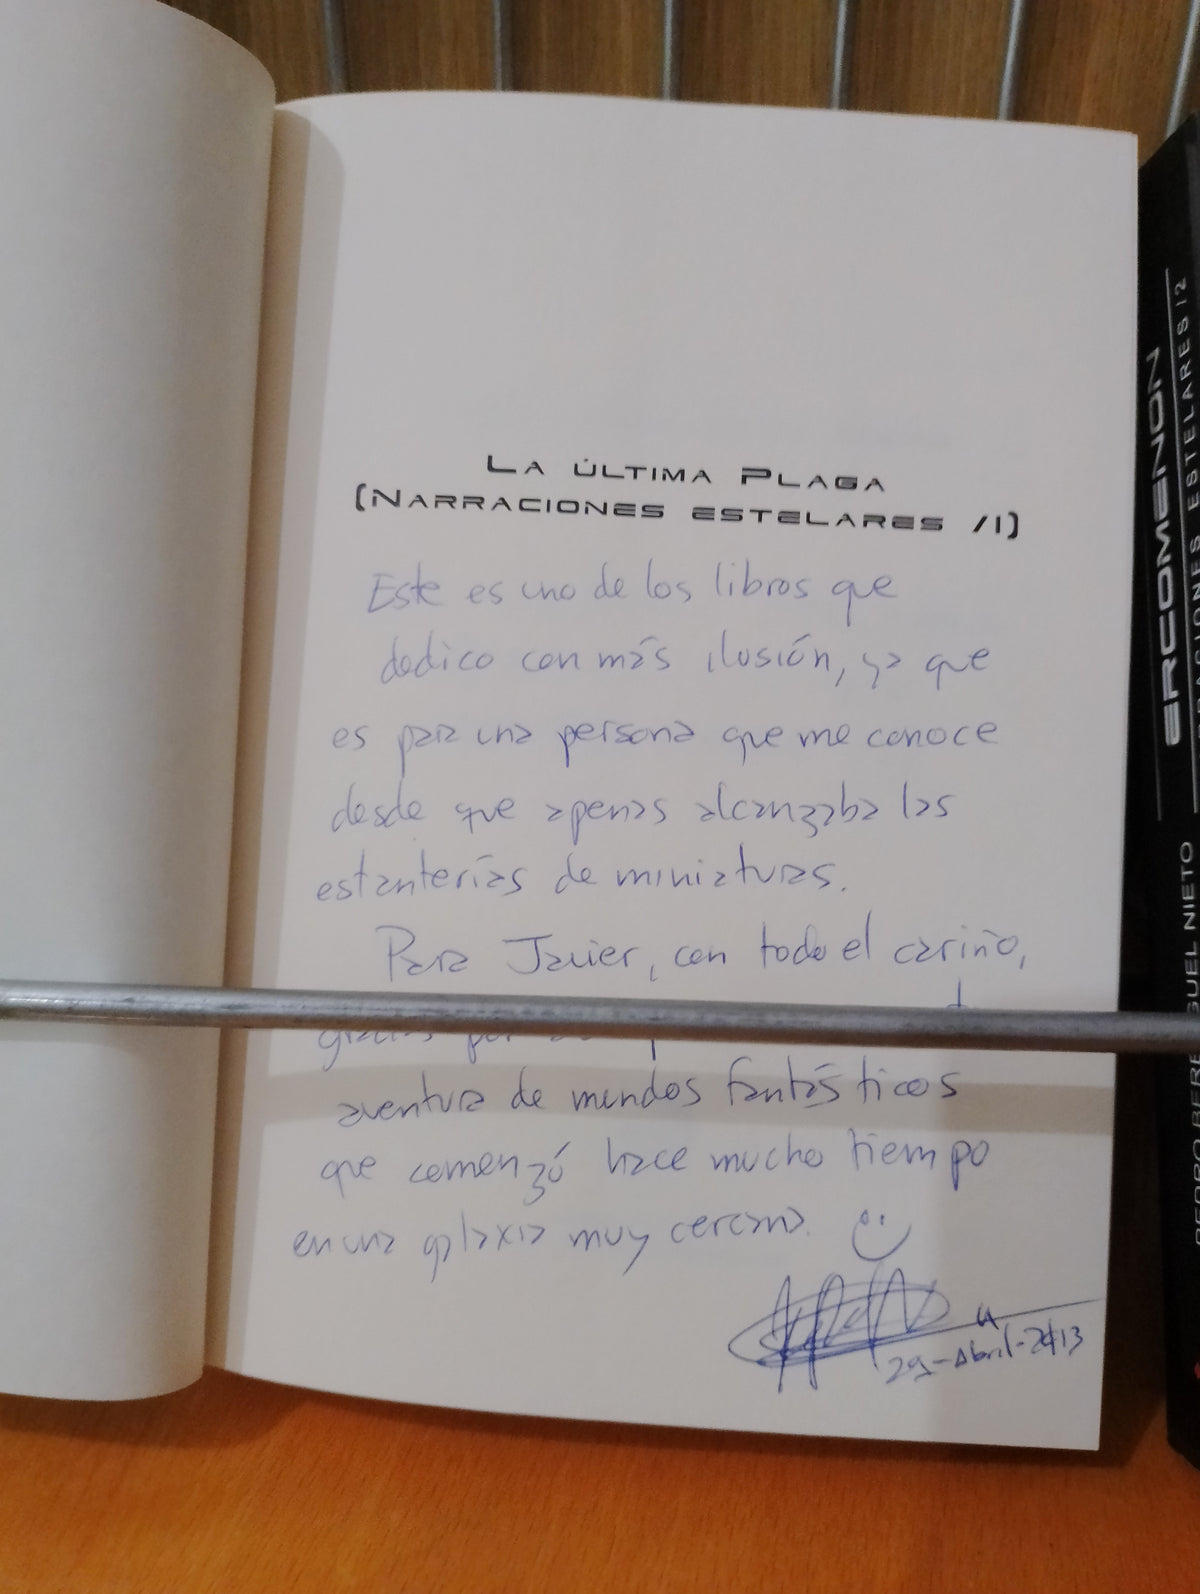 La última Plaga
(Narraciones estelares /1)
Este es uno de los libros que
dedico con más ilusión, ya que
es para una persona que me conoce
desde que apenas alcanzaba las
estanterías de miniaturas.
Para Javier, con todo el cariño,
gracias por
aventura de mundos fantásticos
que comenzó hace mucho tiempo
en una galaxia muy cercana.
29-Abril-2013
ERCOMENON
NARRACIONES ESTELARES/2
NIETO